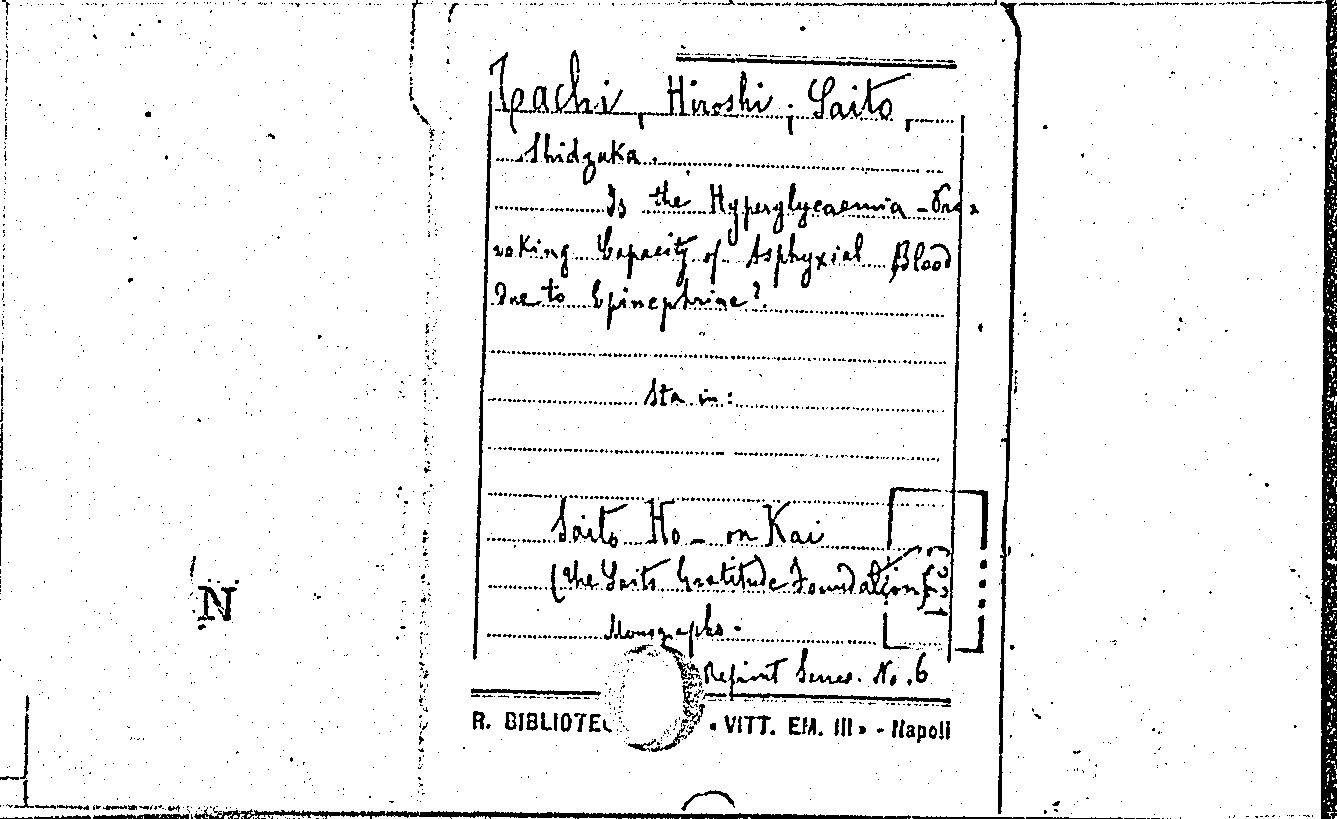 Tachi, Hiroshi; Saito,
Shidzuka.
Is the Hyperglycaemia-Pro-
voking Capacity of Asphyxial Blood
Due to Epinephrine?
Sta in:
Saito Ho-on Kai
(The Saito Gratitude Foundation)
Monographs.
Reprint Series. No. 6
N
R. BIBLIOTEC « VITT. EM. III » - Napoli